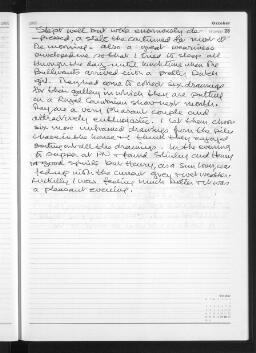 October
28
Slept well but woke enormously de-
pressed, a state that continued for most of
the morning. Also a great weariness
enveloped me, so that I tried to sleep all
through the day until lunch time when the
arrived with a pretty Dutch
girl. They had come to collect six drawings
for their gallery in which they are putting
on a Royal Gambian show next month.
They are a very pleasant couple and
attractively enthusiastic. I let them choose
six more unframed drawings from the
chest in the house & I think they enjoyed
all the drawings. In the evening
to supper at PN & found Shirley and Henry
in good spirits but Henry, as a Sun lover, was
fed up with the current grey & wet weather.
Luckily I was feeling much better & it was
a pleasant evening.
October